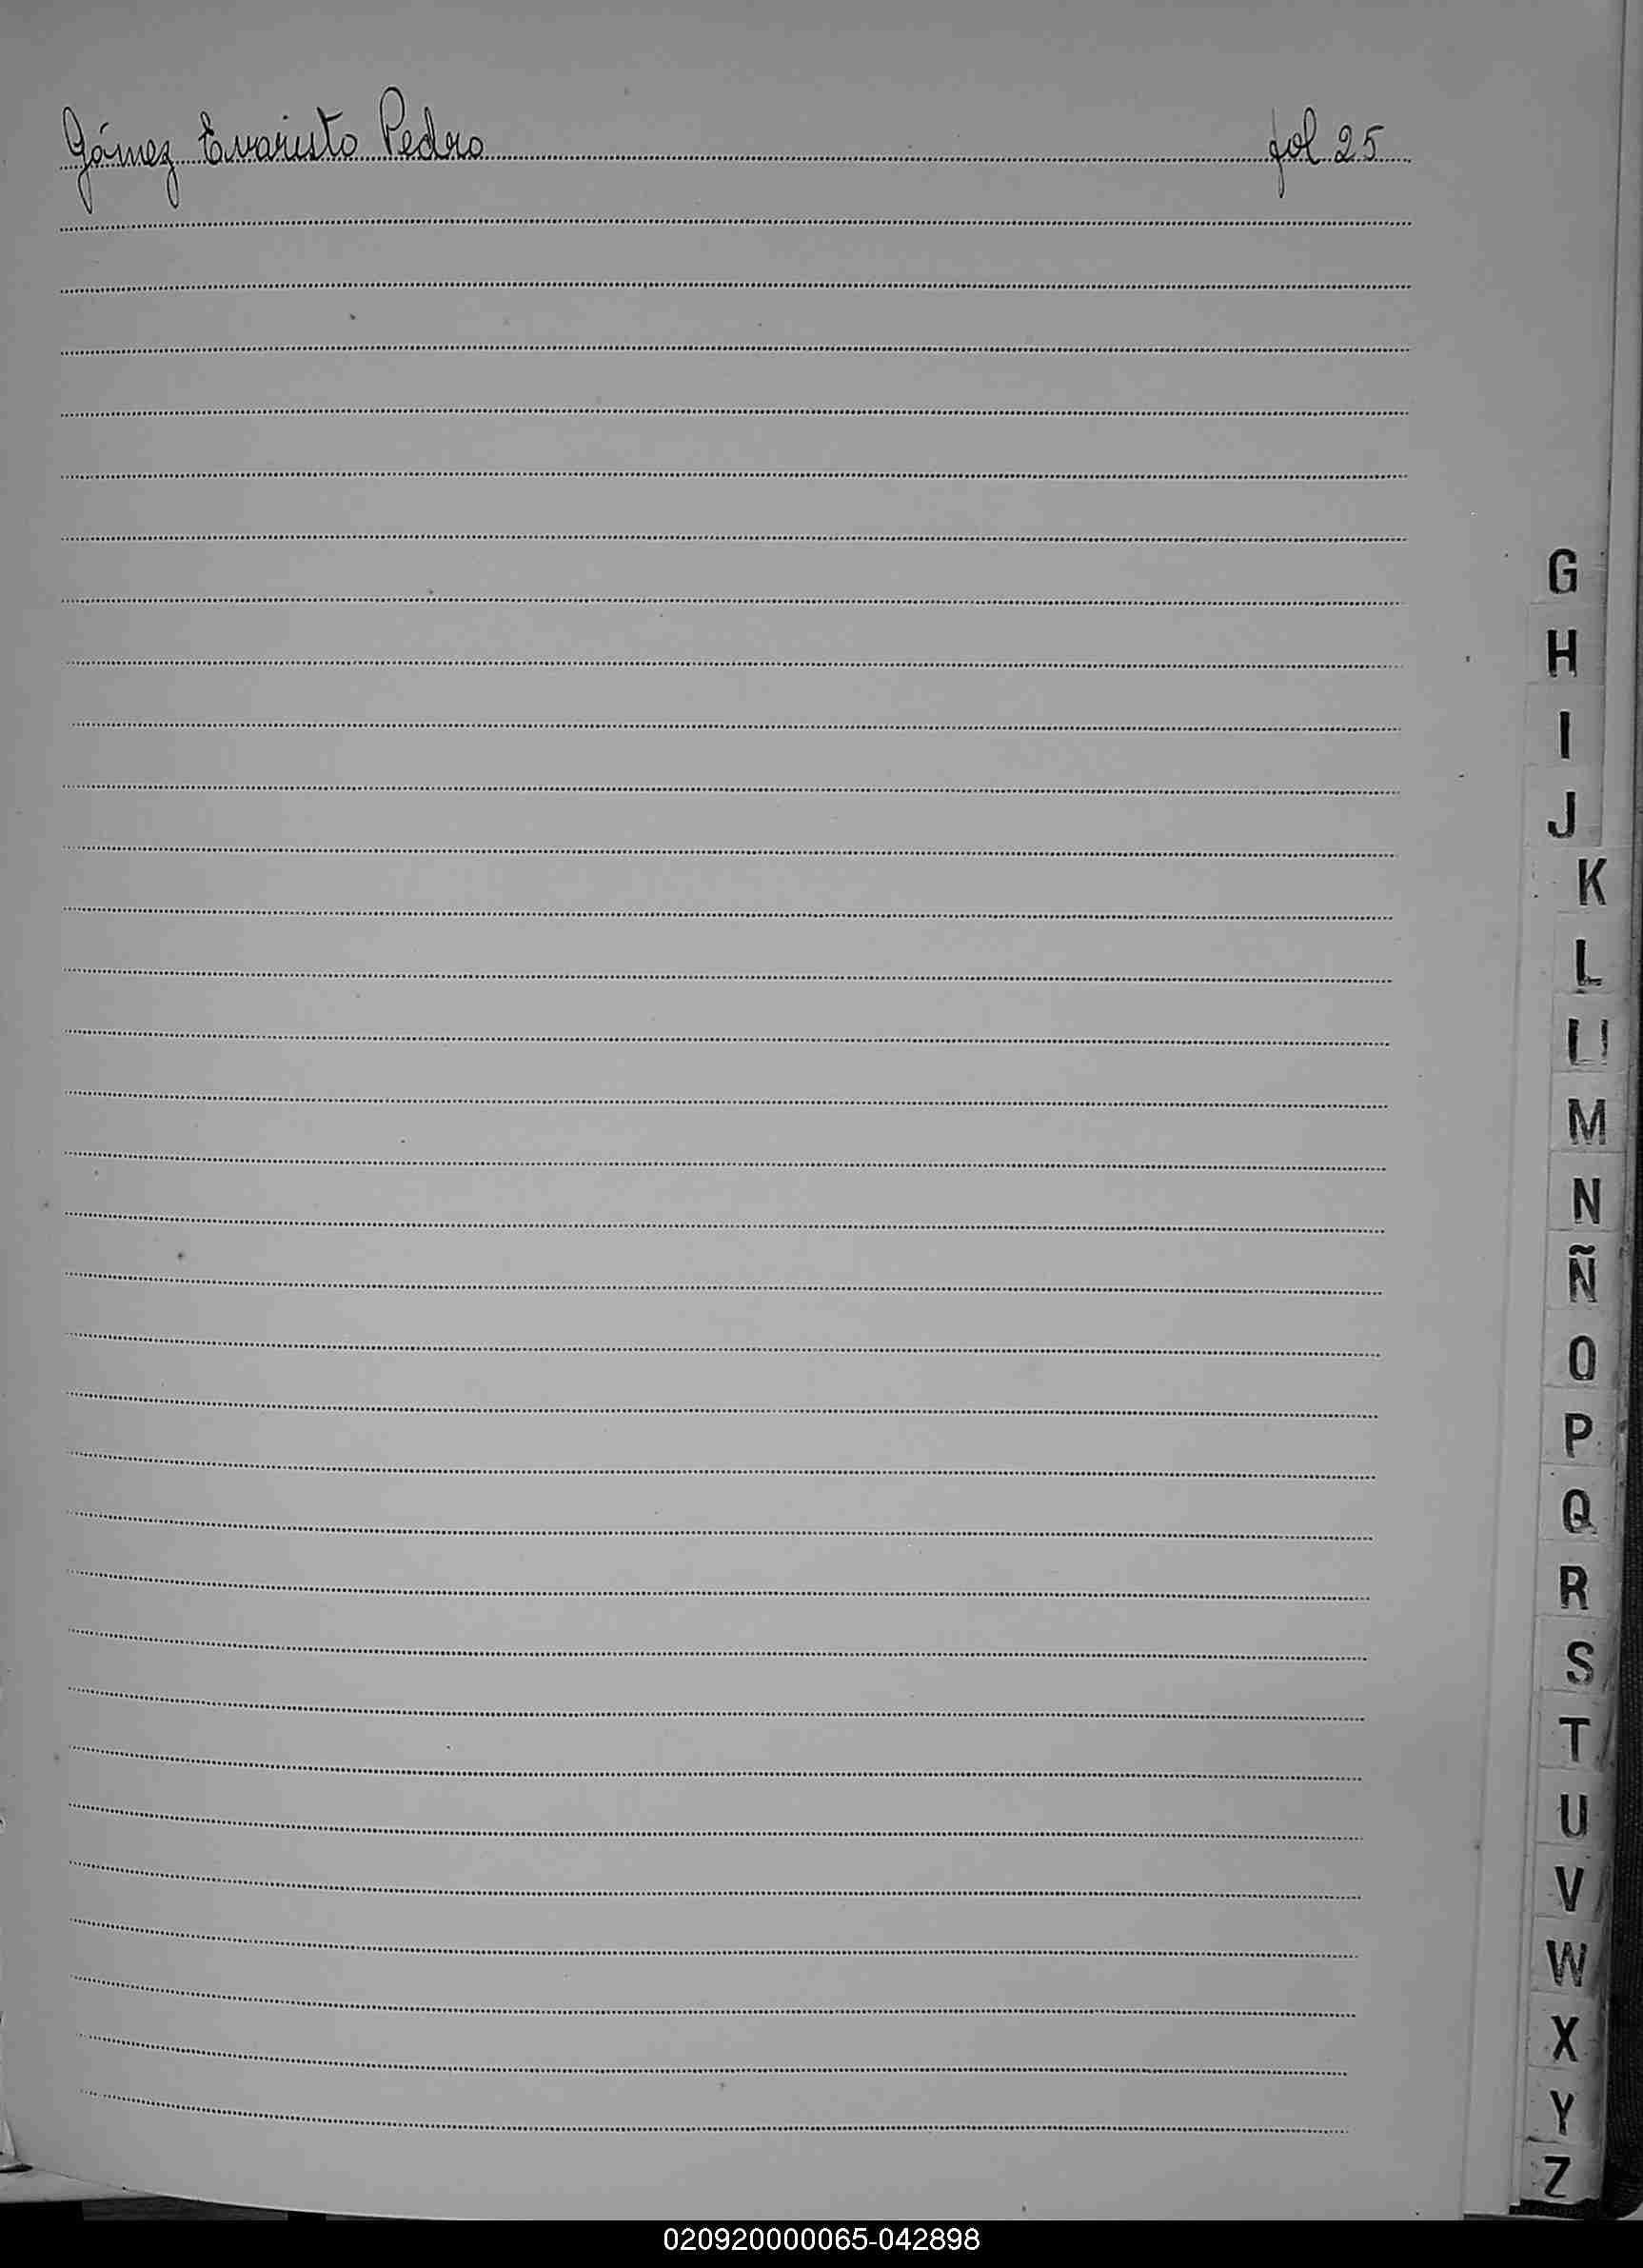 Gómez Evaristo Pedro fol 25
G
H
I
J
K
L
Ll
M
N
Ñ
O
P
Q
R
S
T
U
V
W
X
Y
Z
020920000065-042898